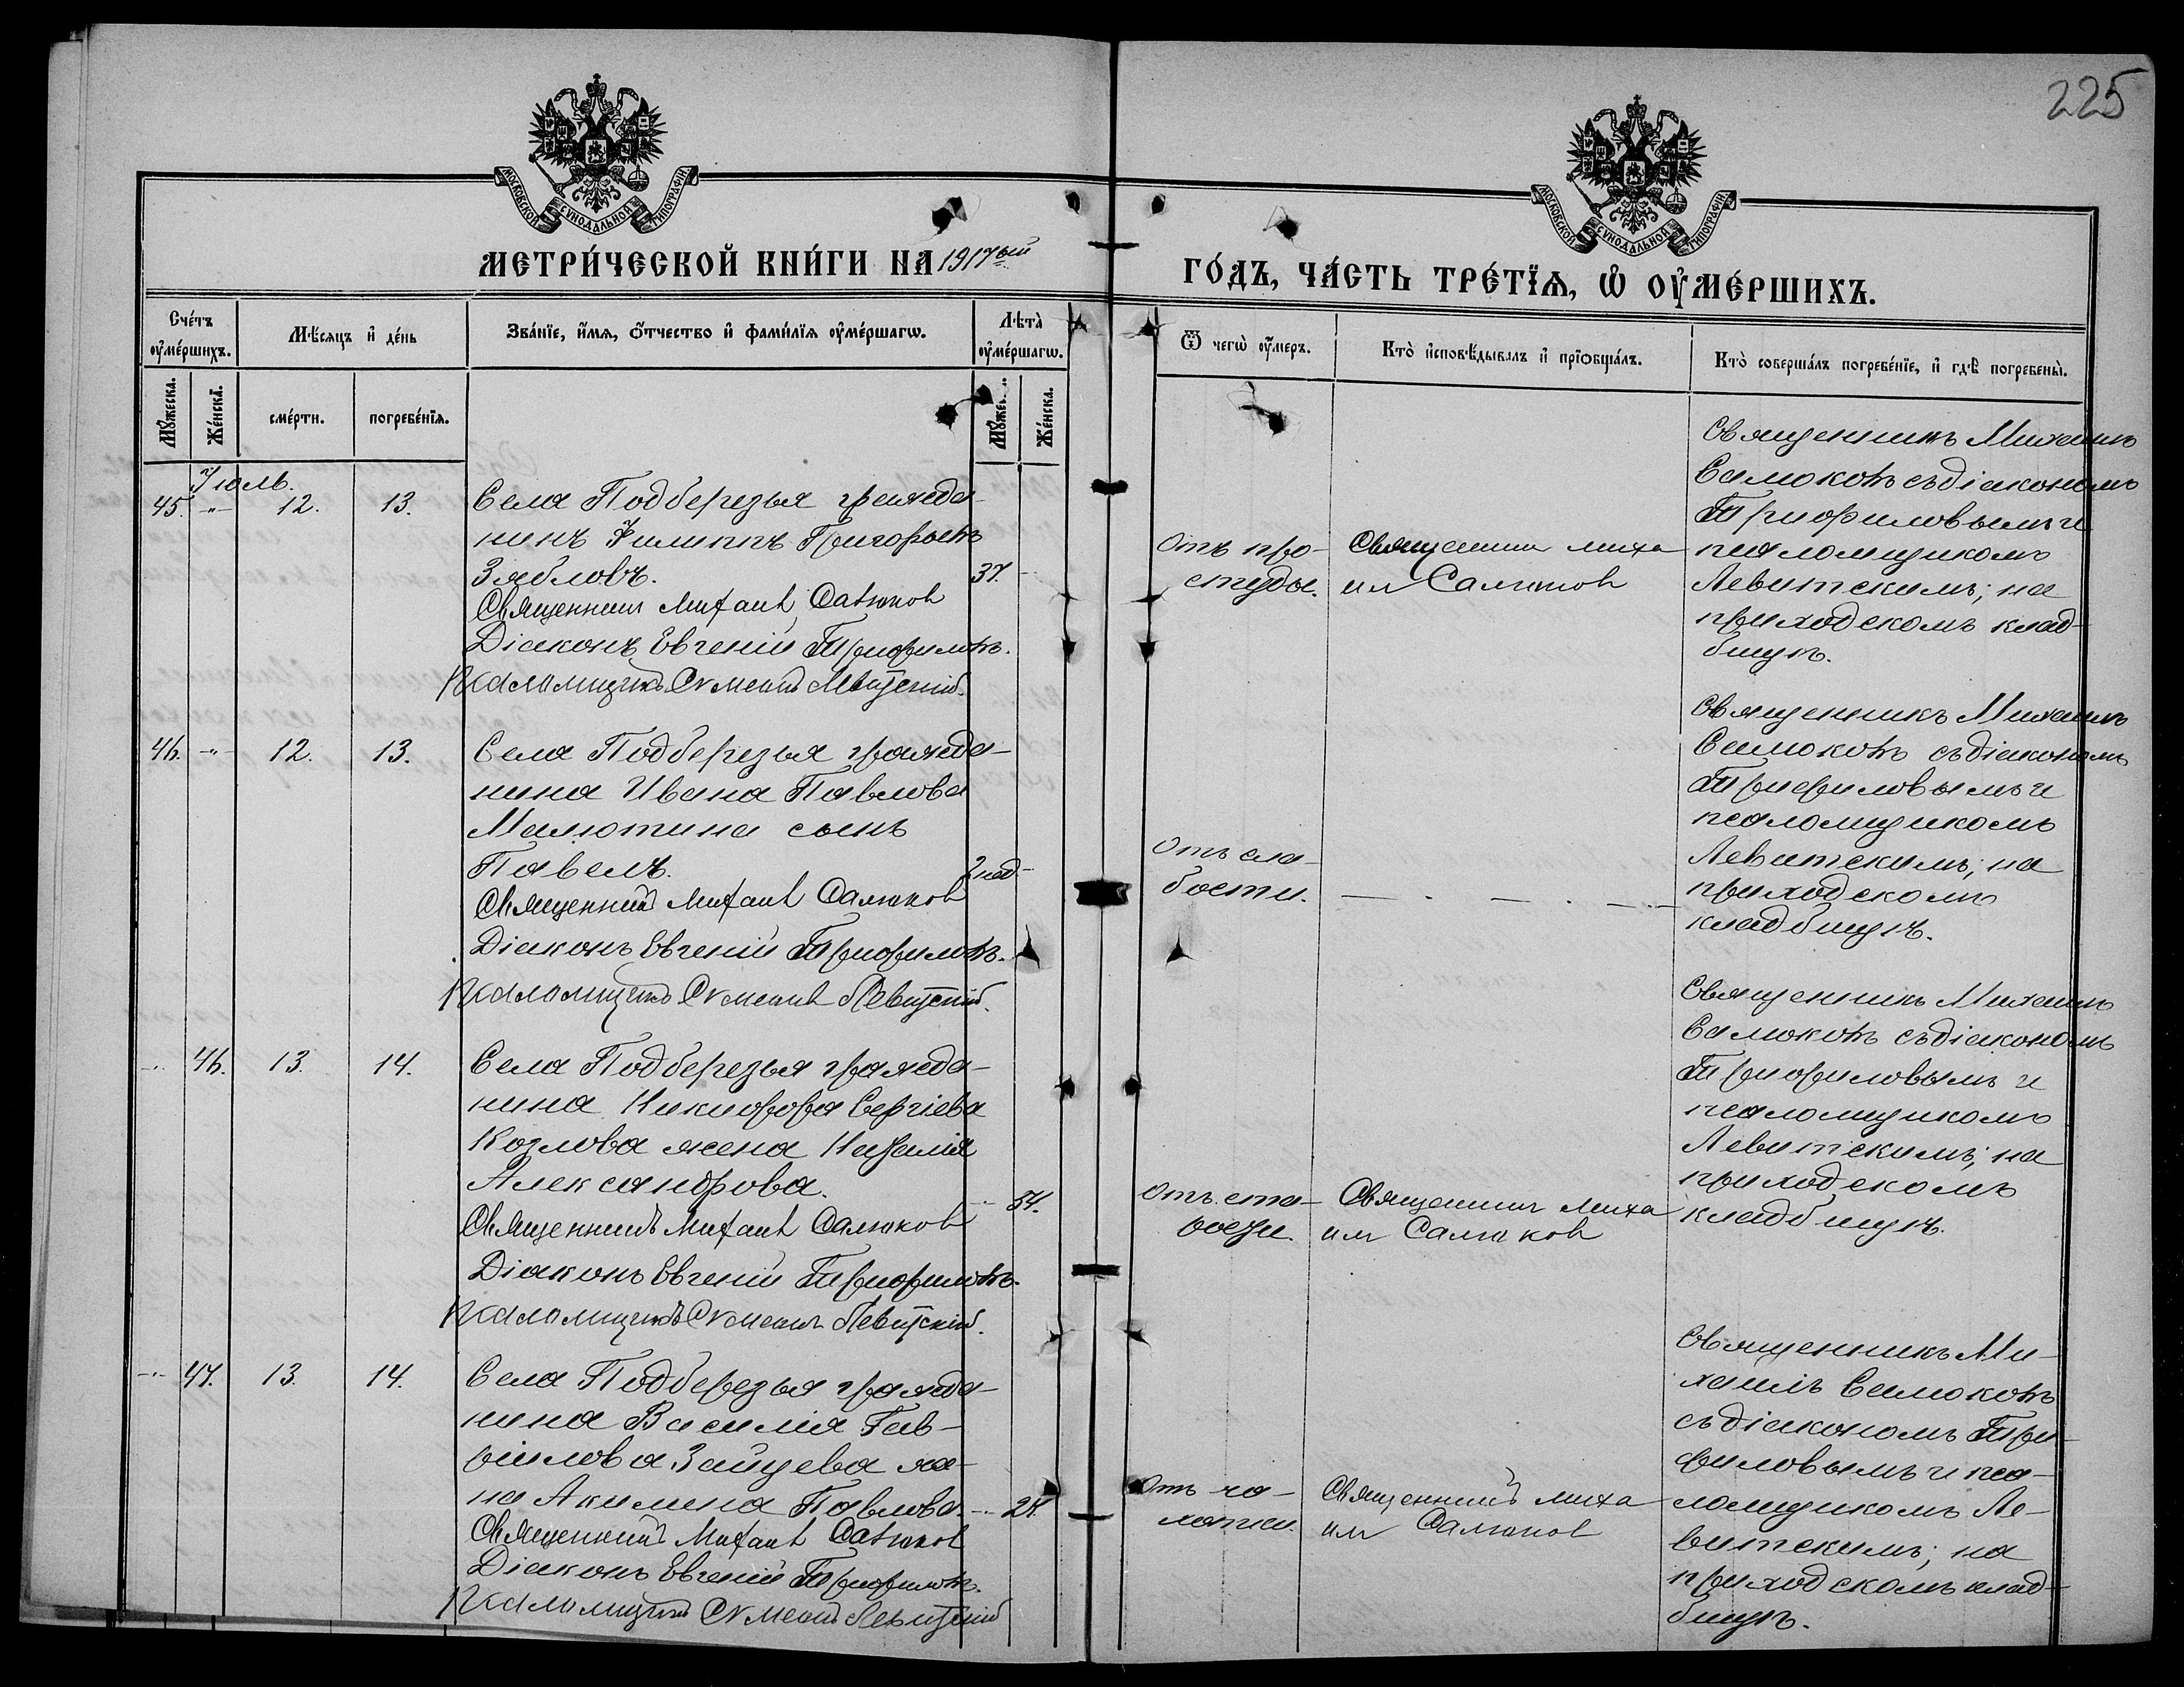 225
МОСКОВСКОЙ СУНОДАЛЬНОЙ ТИПОГРАФІИ.
МОСКОВСКОЙ СУНОДАЛЬНОЙ ТИПОГРАФІИ.
МЕТРИ́ЧЕСКОЙ КНИ́ГИ НА 1917ый
ГО́ДЪ, ЧА́СТЬ ТРЕ́ТІѦ, Ѡ҆ ОУ҆МЕ́РШИХЪ.
Сче́тъ оу҆ме́ршихъ.
Мѣ́сяцъ и҆ де́нь
Зва́нїе, и҆́мѧ, ѻ҆́тчество и҆ фами́лїѧ оу҆ме́ршагѡ.
Лѣ́та оу҆ме́ршагѡ.
Ѿ чегѡ̀ оу҆́меръ.
Кто̀ и҆сповѣ́дывалъ и҆ прїѡбща́лъ.
Кто̀ соверша́лъ погребе́нїе, и҆ гдѣ̀ погребены̀.
Мꙋ́жеска.
Же́нска.
сме́рти.
погребе́нїѧ.
Мꙋ́жес
Же́нска.
Іюль.
45. -"- 12. 13.
Села Подберезья гражда-
нинъ Филиппъ Григорьевъ
Зябловъ. 37.
Священникъ Михаил Салюков
Діаконъ Евгеній Трифиловъ.
Псаломщикъ Симеонъ Левитскій.
Отъ про-
студы.
Священник Миха
ил Салюков
Священникъ Михаилъ
Салюковъ съ діакономъ
Трифиловымъ и
псаломщикомъ
Левитскимъ; на
приходскомъ клад-
бищѣ.
46. -"- 12. 13.
Села Подберезья гражда-
нина Ивана Павлова
Малютина сынъ
Павелъ. 2 нед.
Священникъ Михаил Салюков
Діаконъ Евгеній Трифиловъ.
Псаломщикъ Симеонъ Левитскій.
Отъ сла-
бости.
— . — . —
Священникъ Михаилъ
Салюковъ съ діакономъ
Трифиловымъ и
псаломщикомъ
Левитскимъ; на
приходскомъ
кладбищѣ.
-"- 46. 13. 14.
Села Подберезья гражда-
нина Никифора Сергіева
Козлова жена Наталія
Александрова. 54.
Священникъ Михаил Салюков
Діаконъ Евгеній Трифиловъ.
Псаломщикъ Симеонъ Левитскій.
Отъ ста-
рости.
Священник Миха
ил Салюков
Священникъ Михаилъ
Салюковъ съ діакономъ
Трифиловымъ и
псаломщикомъ
Левитскимъ; на
приходскомъ
кладбищѣ.
-"- 47. 13. 14.
Села Подберезья гражда-
нина Василія Гав-
рилова Зайцева же-
на Акилина Павлова.
Священникъ Михаил Салюков
Діаконъ Евгеній Трифиловъ.
Псаломщикъ Симеонъ Левитскій
Отъ ча-
хотки.
Священникъ Миха
ил Салюков
Священникъ Ми-
хаилъ Салюковъ
съ діакономъ Три-
филовымъ и пса-
ломщикомъ Ле-
витскимъ; на
приходскомъ клад-
бищѣ.